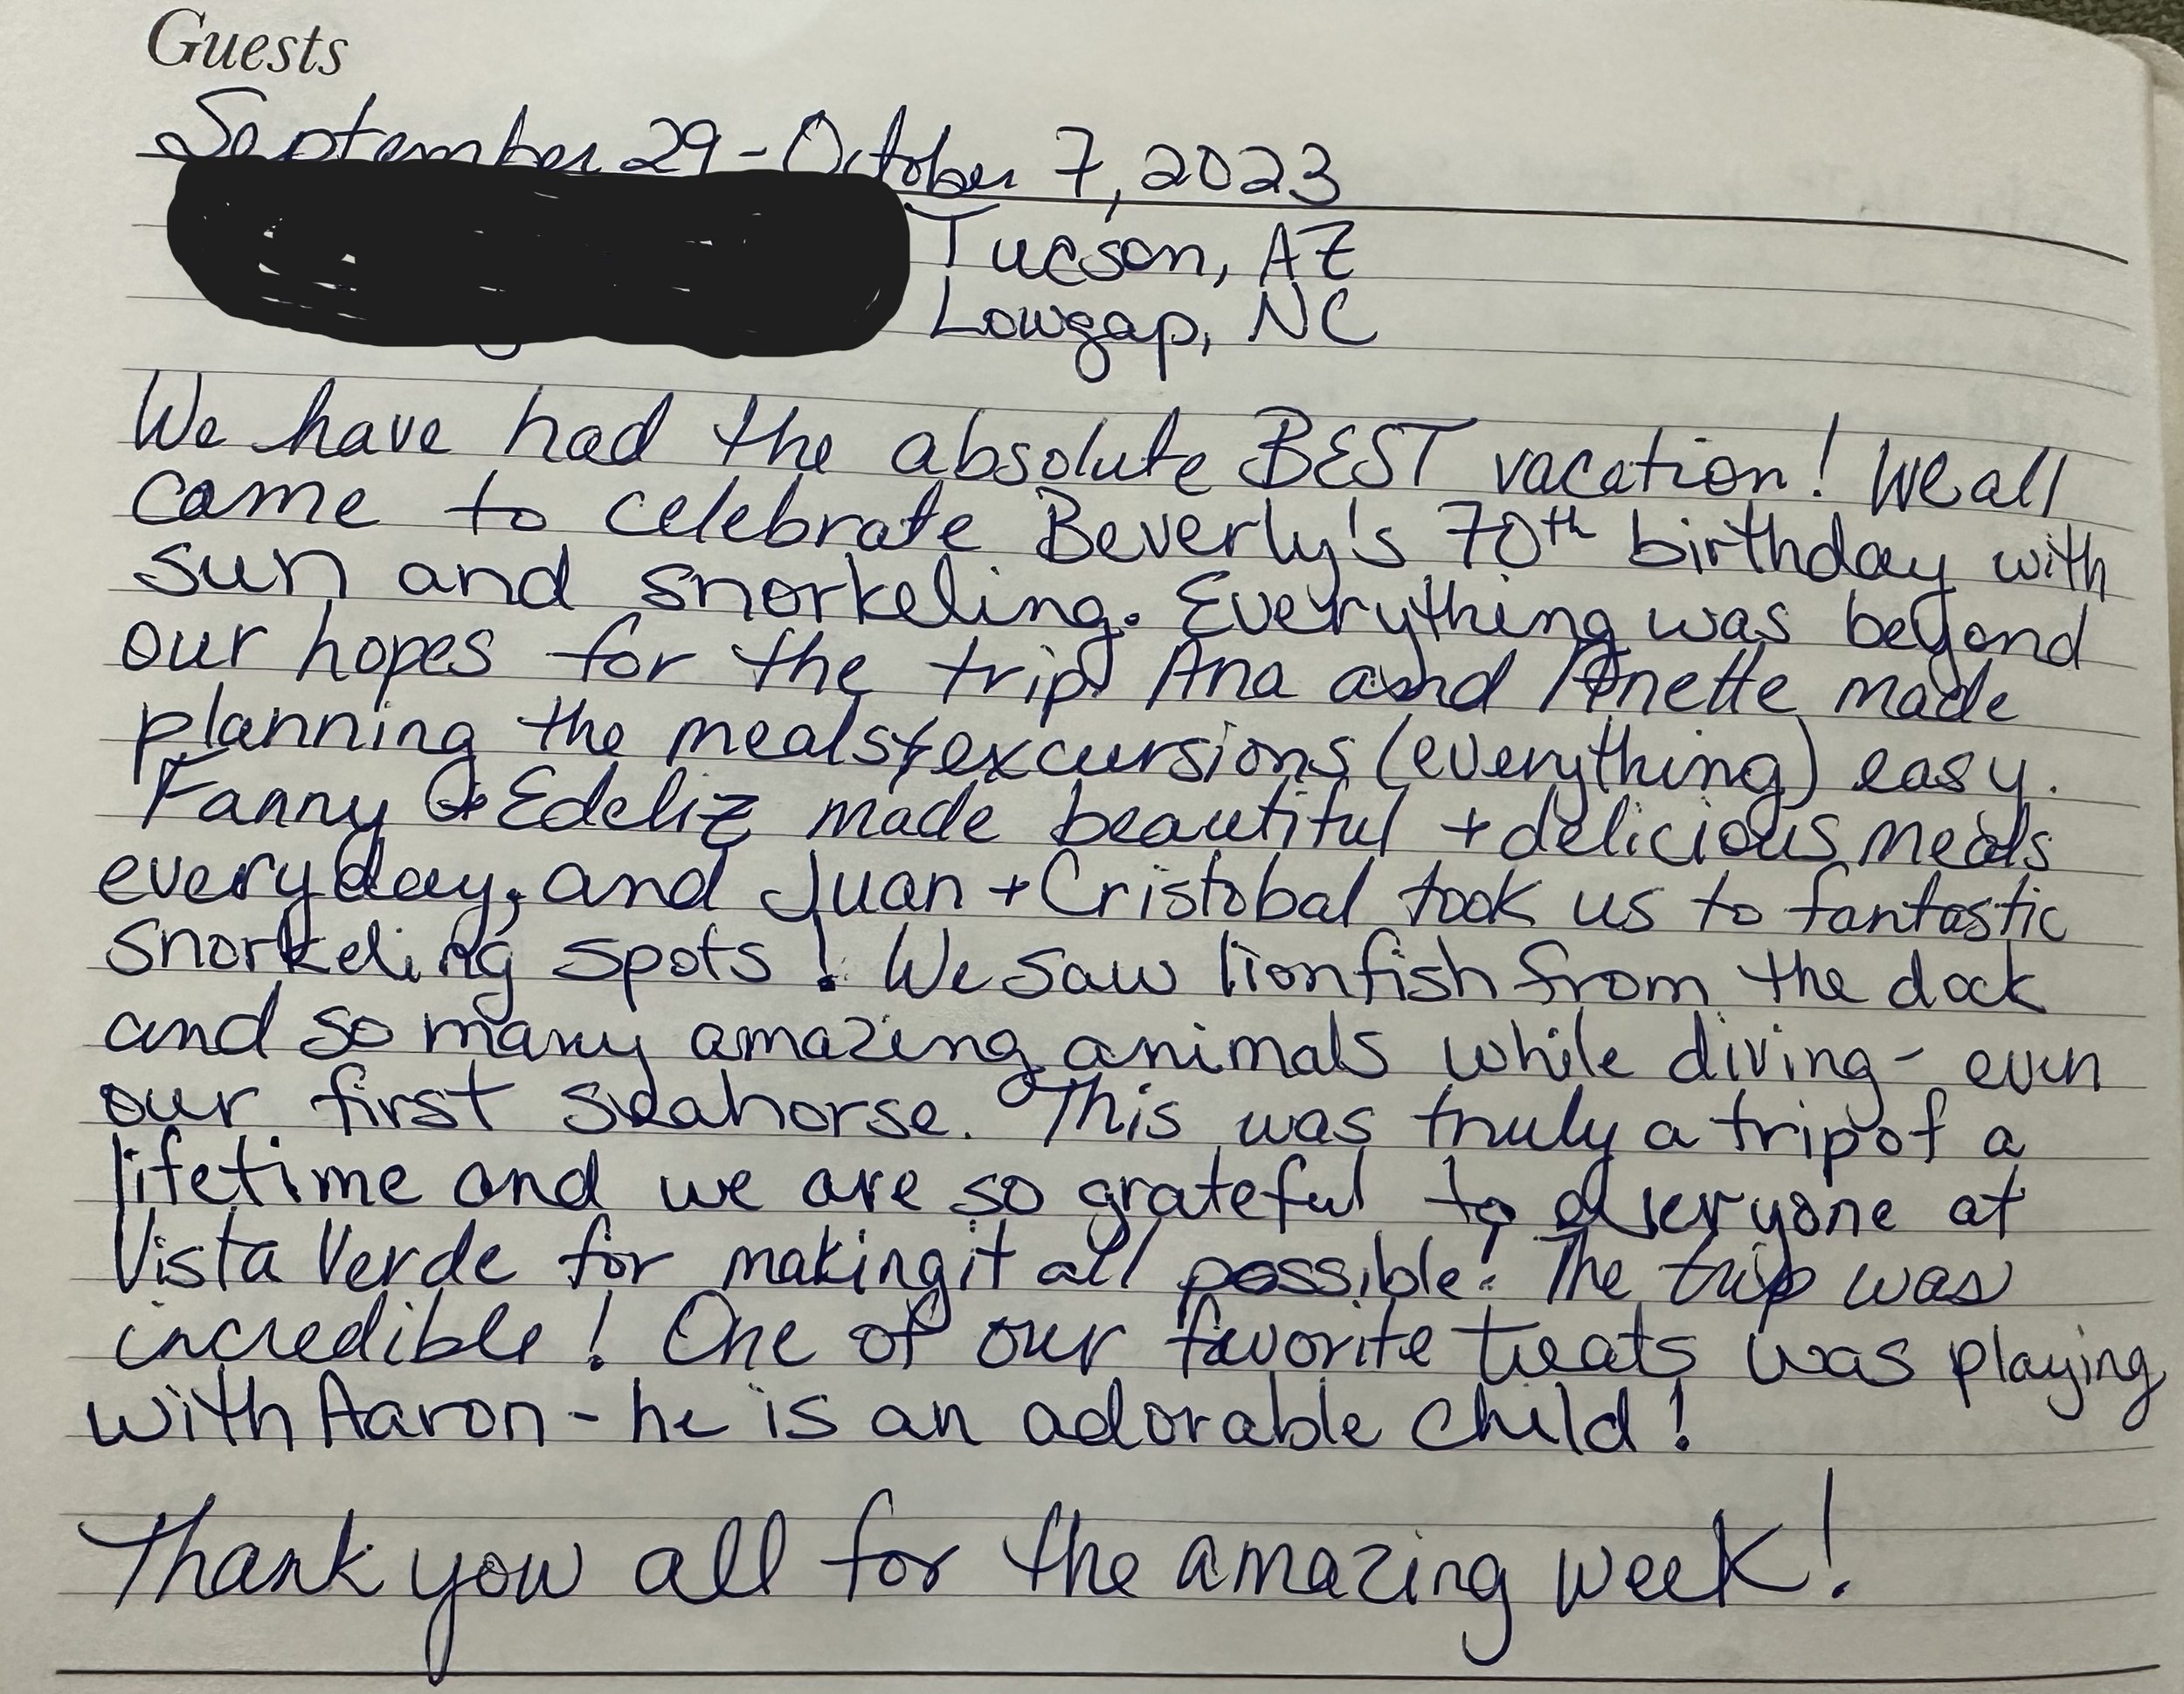 Guests
September 29 - October 7, 2023
Tucson, AZ
Lowgap, NC
We have had the absolute BEST vacation! We all
came to celebrate Beverly's 70th birthday with
sun and snorkeling. Everything was beyond
our hopes for the trip. Ana and Anette made
planning the meals + excursions (everything) easy.
Fanny & Edeliz made beautiful + delicious meals
everyday, and Juan + Cristobal took us to fantastic
snorkeling spots! We saw lionfish from the dock
and so many amazing animals while diving - even
our first seahorse. This was truly a trip of a
lifetime and we are so grateful to everyone at
Vista Verde for making it all possible! The trip was
incredible! One of our favorite treats was playing
with Aaron - he is an adorable child!
Thank you all for the amazing week!